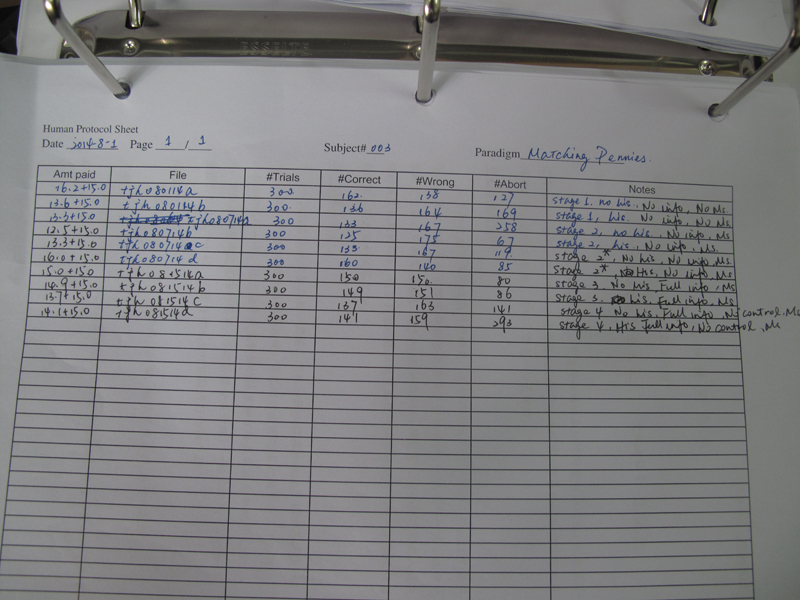 Human Protocol Sheet
Date 2014-8-1 Page 1 / 1 Subject# 003 Paradigm Matching Pennies.
Amt paid File #Trials #Correct #Wrong #Abort Notes
16.2+15.0 tjh080114a 300 162 138 127 stage 1, no his, No info, No Ms
13.6+15.0 tjh080114b 300 136 164 169 stage 1, his No info, No Ms
13.3+15.0 tjh080714a 300 133 167 258 stage 2, no his, No info, Ms
12.5+15.0 tjh080714b 300 125 175 67 stage 2, his, No info, Ms
13.3+15.0 tjh080714c 300 133 167 119 stage 2*, No his, No info, Ms
16.0+15.0 tjh080714d 300 160 140 85 stage 2*, His, No info, Ms
15.0+15.0 tjh081514a 300 150 150 80 stage 3, No his, Full info, Ms
14.9+15.0 tjh081514b 300 149 151 86 stage 3, his, Full info, Ms
13.7+15.0 tjh081514c 300 137 163 141 stage 4 No his, Full info, No control, Ms
14.1+15.0 tjh081514d 300 141 159 293 stage 4, His Full info, No control, Ms